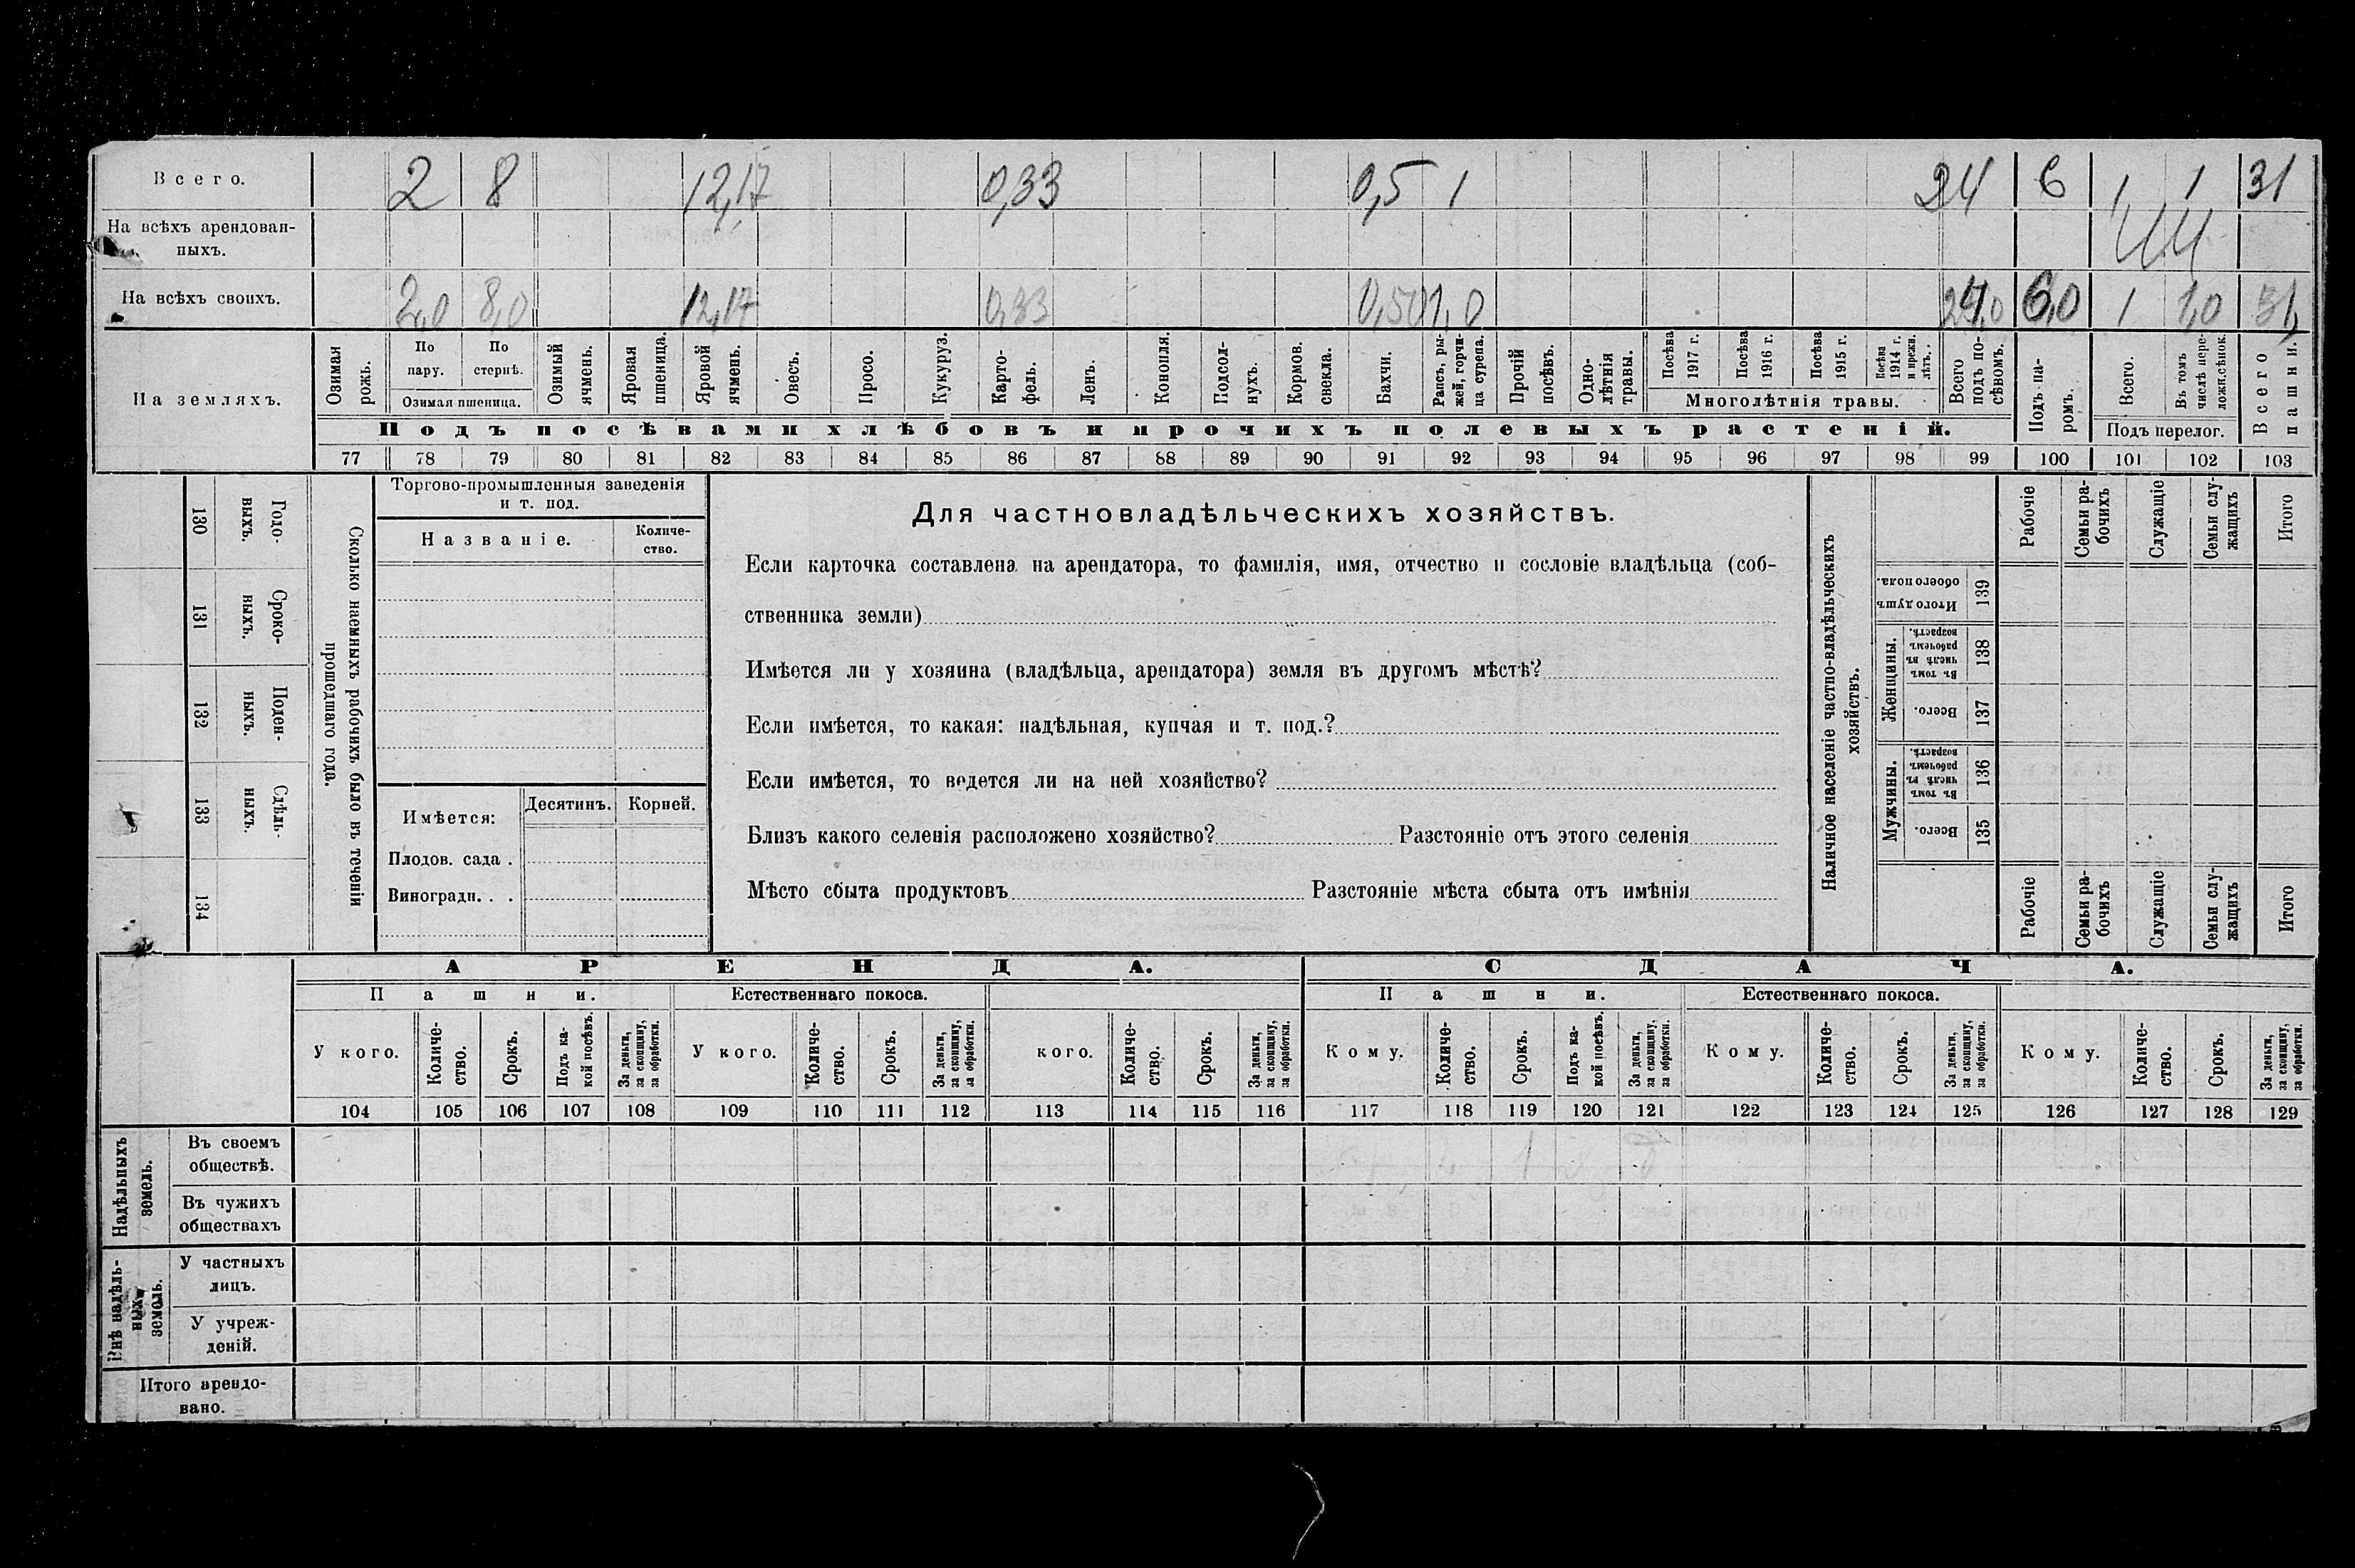 Всего. 2 8 12,17 0,33 0,5 1 24 6 1 1 31
На всѣхъ арендован-
ныхъ.
На всѣхъ своихъ. 2,0 8,0 12,17 0,33 0,50 1,0 24,0 6,0 1 1,0 31,
На земляхъ.
Озимая рожь.
По пару.
По стернѣ.
Озимая пшеница.
Озимый ячмень.
Яровая пшеница.
Яровой ячмень.
Овесъ.
Просо.
Кукуруз.
Карто-
фель.
Ленъ.
Конопля.
Подсол-
нухъ.
Кормов.
свекла.
Бахчи.
Рапсъ, ры-
жей, горчи-
ца сурепа.
Прочій
посѣвъ.
Одно-
лѣтнія
травы.
Посѣва
1917 г.
Посѣва
1916 г.
Посѣва
1915 г.
Посѣва
1914 г.
и прежн.
лѣтъ.
Многолѣтнія травы.
Всего
подъ по-
сѣвомъ.
Подъ па-
ромъ.
Всего.
Въ томъ
числѣ пере-
ложн.сѣнок.
Подъ перелог.
Всего
пашни.
Подъ посѣвами хлѣбовъ и прочихъ полевыхъ растеній.
77 78 79 80 81 82 83 84 85 86 87 88 89 90 91 92 93 94 95 96 97 98 99 100 101 102 103
130 Годо-
выхъ.
131 Сроко-
выхъ.
132 Поден-
ныхъ.
133 Сдѣль-
ныхъ.
134
Сколько наемныхъ рабочихъ было въ теченіи
прошедшаго года.
Торгово-промышленныя заведенія
и т. под.
Названіе.
Количе-
ство.
Имѣется: Десятинъ. Корней.
Плодов. сада .
Виноградн. . .
Для частновладѣльческихъ хозяйствъ.
Если карточка составлена на арендатора, то фамилія, имя, отчество и сословіе владѣльца (соб-
ственника земли)
Имѣется ли у хозяина (владѣльца, арендатора) земля въ другомъ мѣстѣ?
Если имѣется, то какая: надѣльная, купчая и т. под.?
Если имѣется, то ведется ли на ней хозяйство?
Близъ какого селенія расположено хозяйство? Разстояніе отъ этого селенія
Мѣсто сбыта продуктовъ Разстояніе мѣста сбыта отъ имѣнія
Наличное населеніе частно-владѣльческихъ
хозяйствъ.
Рабочіе
Семьи ра-
бочихъ
Служащіе
Семьи слу-
жащихъ
Итого
Итого душъ
обоего пола. 139
Женщины.
Въ томъ
числѣ въ
рабочемъ
возрастѣ. 138
Всего. 137
Мужчины.
Въ томъ
числѣ въ
рабочемъ
возрастѣ. 136
Всего. 135
Рабочіе
Семьи ра-
бочихъ
Служащіе
Семьи слу-
жащихъ
Итого
АРЕНДА. СДАЧА.
Пашни. Естественнаго покоса. Пашни. Естественнаго покоса.
У кого.
Количе-
ство.
Срокъ.
Подъ ка-
кой посѣвъ.
За деньги,
за скопщину,
за обработки.
У кого.
Количе-
ство.
Срокъ.
За деньги,
за скопщину,
за обработки.
кого.
Количе-
ство.
Срокъ.
За деньги,
за скопщину,
за обработки.
Кому.
Количе-
ство.
Срокъ.
Подъ ка-
кой посѣвъ.
За деньги,
за скопщину,
за обработки.
Кому.
Количе-
ство.
Срокъ.
За деньги,
за скопщину,
за обработки.
Кому.
Количе-
ство.
Срокъ.
За деньги,
за скопщину,
за обработки.
104 105 106 107 108 109 110 111 112 113 114 115 116 117 118 119 120 121 122 123 124 125 126 127 128 129
Надѣльныхъ
земель.
Въ своемъ
обществѣ.
Въ чужихъ
обществахъ
Внѣ надѣль-
ныхъ
земель.
У частныхъ
лицъ.
У учреж-
деній.
Итого арендо-
вано.